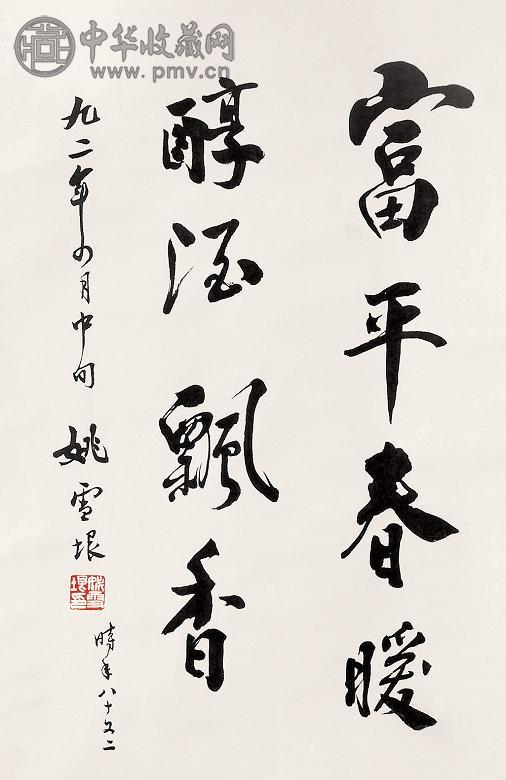 中华收藏网
www.pmv.cn
富平春暖
醇酒飘香
九二年四月中旬 姚雪垠
時年八十又二